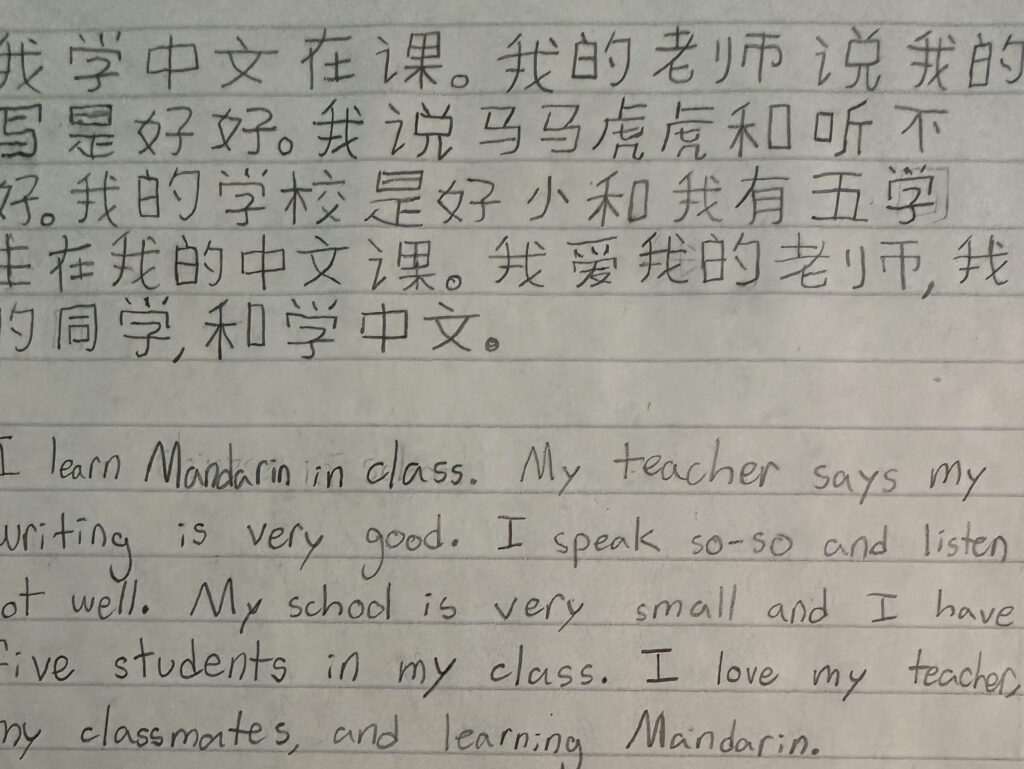 我学中文在课。我的老师说我的
写是好好。我说马马虎虎和听不
好。我的学校是好小和我有五学
生在我的中文课。我爱我的老师,我
的同学,和学中文。
I learn Mandarin in class. My teacher says my
writing is very good. I speak so-so and listen
not well. My school is very small and I have
five students in my class. I love my teacher,
my classmates, and learning Mandarin.